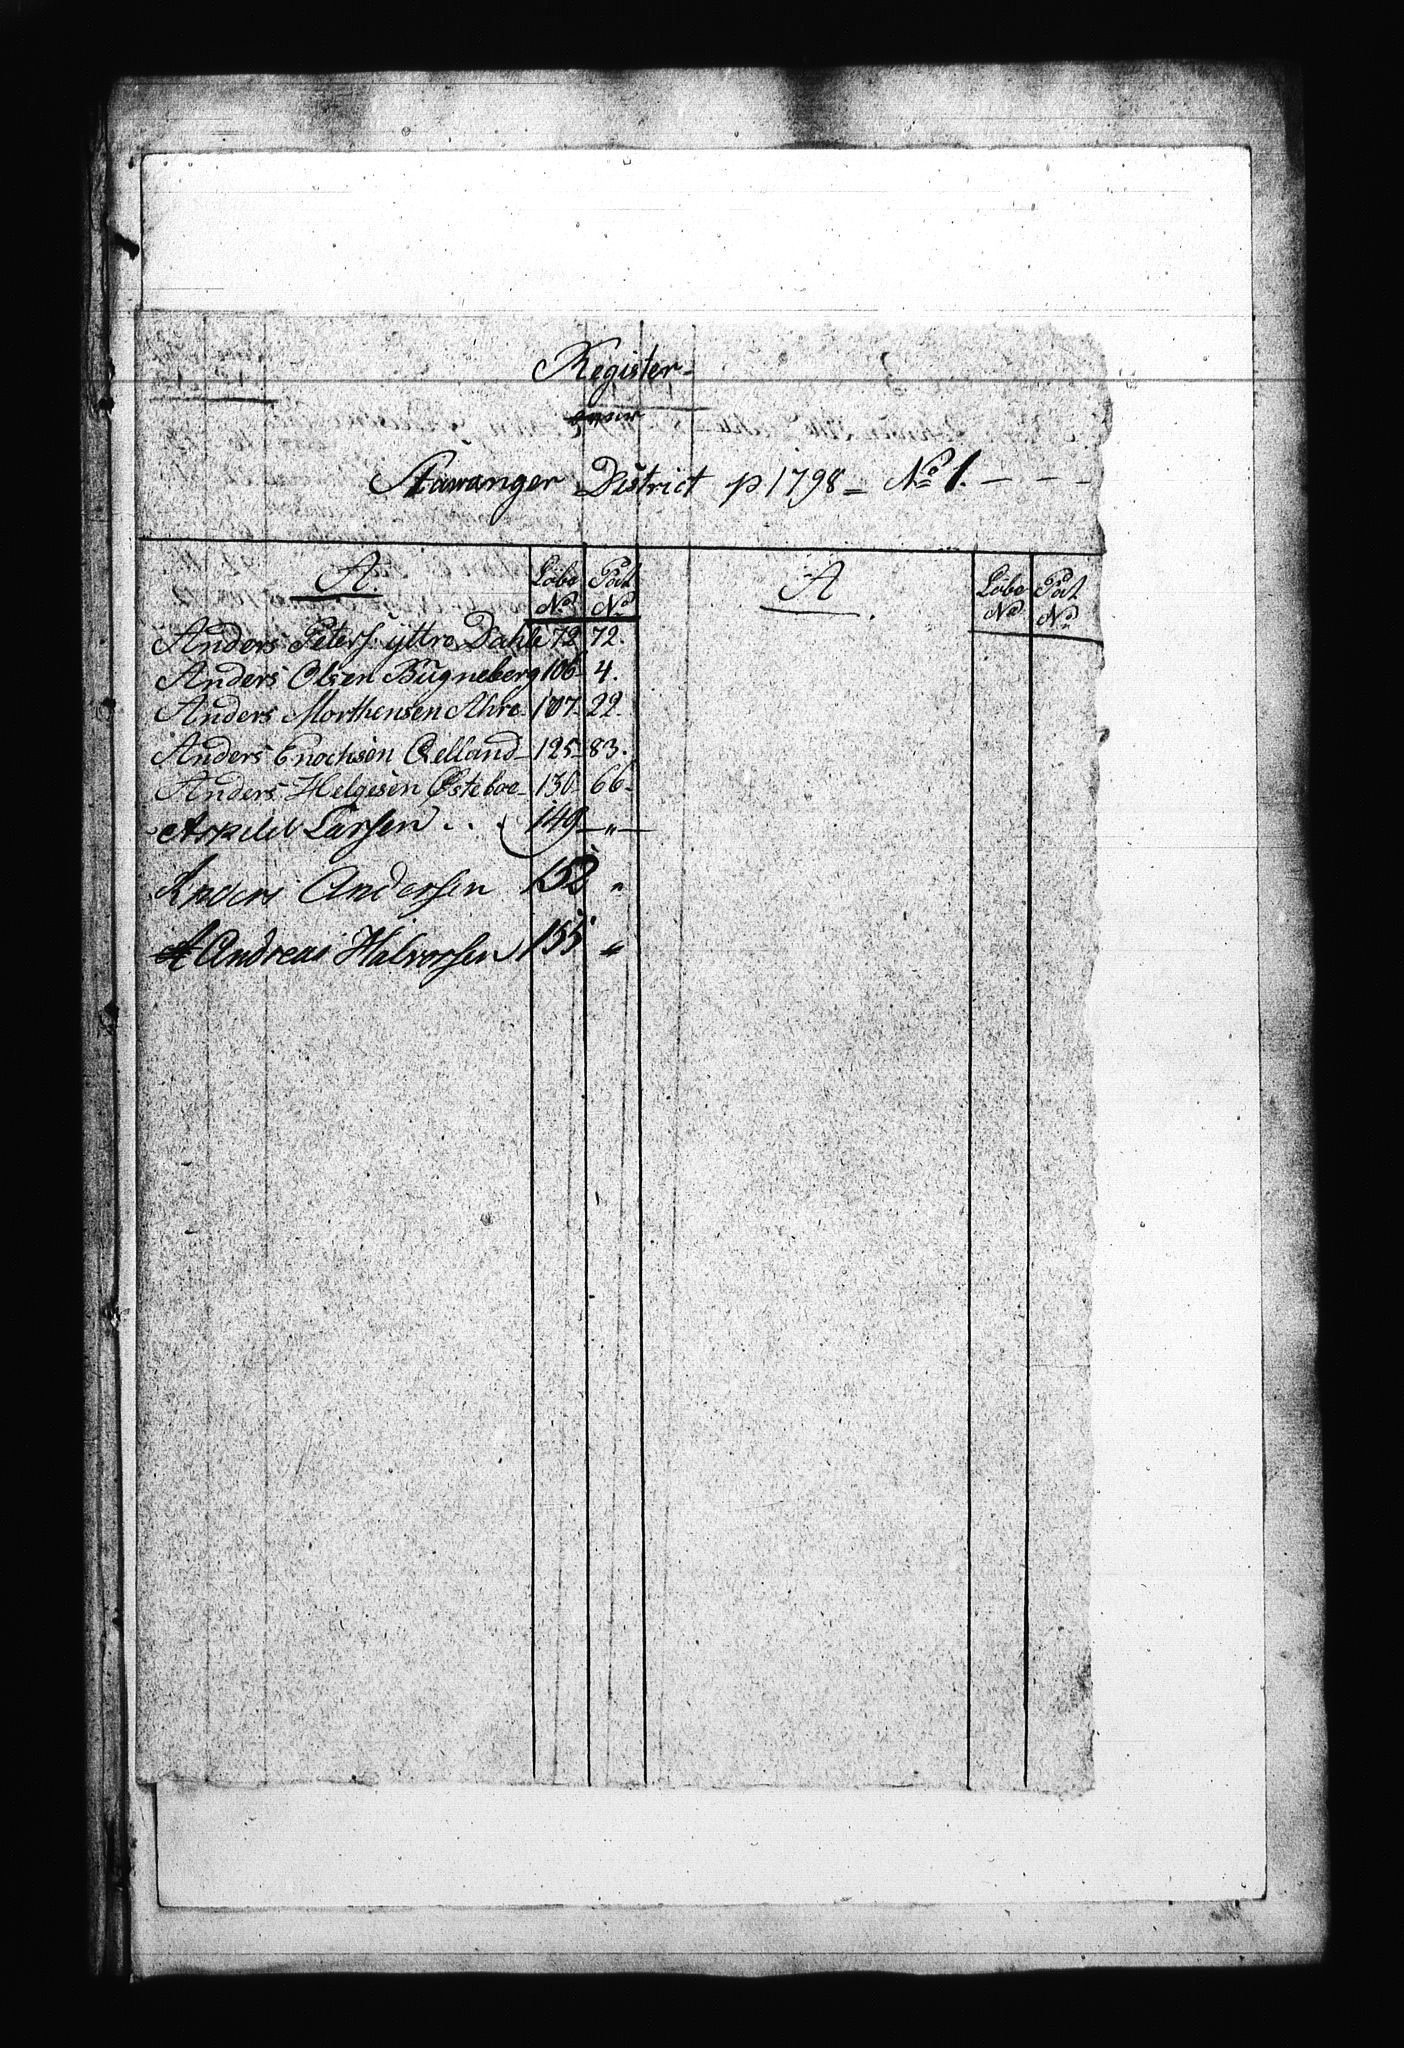 Register
over
Stawanger District p 1798 - No 1.
A Löbe No Pat No A Löbe No Pat No
Anders Peters: yttre Dahle 72 72.
Anders Olsen Bügneberg 106 4.
Anders Morthensen Ahre 107 22
Anders Enochsen Qelland 125 83.
Anders Helgesen Østeboe 136 66
Larsen . . . 149 "
Anders Andersen 152 "
Andreas Halvorsen 155 "